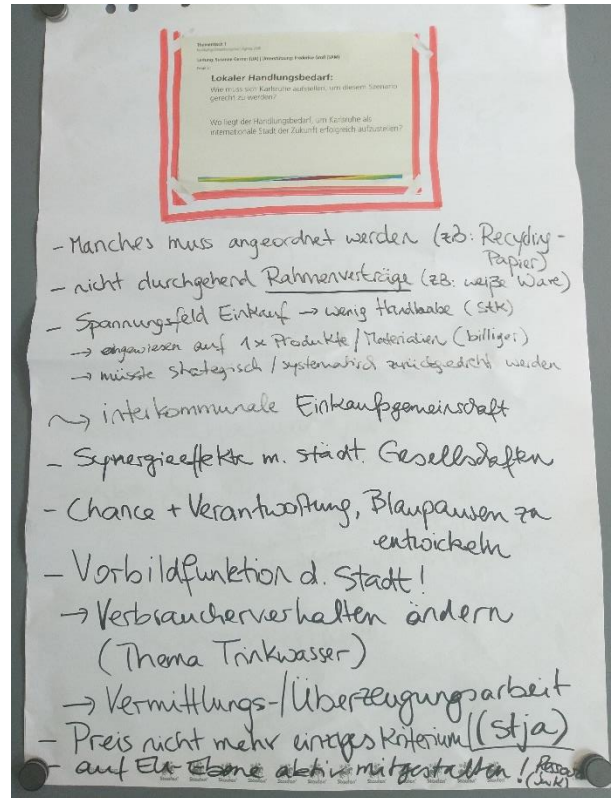 Lokaler Handlungsbedarf:
Wie muss sich Karlsruhe aufstellen, um diesem Szenario
gerecht zu werden?
Wo liegt der Handlungsbedarf, um Karlsruhe als
internationale Stadt der Zukunft erfolgreich aufzustellen?
- Manches muss angeordnet werden (zB: Recycling-
Papier)
- nicht durchgehend Rahmenverträge (zB: weiße Ware)
- Spannungsfeld Einkauf → wenig Handhabe (StK)
→ angewiesen auf 1x Produkte/Materialien (billiger)
→ müsste strategisch/systematisch zurückgedreht werden
interkommunale Einkaufsgemeinschaft
- Synergieeffekte m. städt. Gesellschaften
- Chance + Verantwortung, Blaupausen zu
entwickeln
- Vorbildfunktion d. Stadt!
→ Verbraucherverhalten ändern
(Thema Trinkwasser)
→ Vermittlungs-/Überzeugungsarbeit
- Preis nicht mehr einziges Kriterium! (stja)
- auf EU-Ebene aktiv mitgestalten!